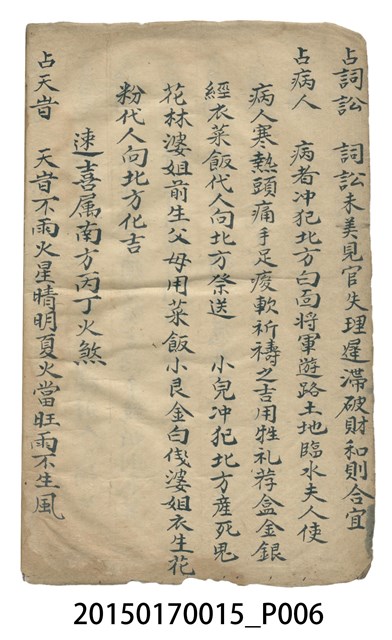 占詞訟　詞訟未美見官失理遲滯破財和則合宜
占病人　病者冲犯北方白高將軍遊路土地臨水夫人使
病人寒熱頭痛手足痠軟祈禱之吉用牲礼荐盒金銀
經衣菜飯代人向北方祭送　小兒冲犯北方產死鬼
花林婆姐前生父母用菜飯小艮金白伐婆姐衣生花
粉代人向北方化吉
速喜属南方丙丁火煞
占天昔　天昔不雨火星晴明夏火當旺雨不生風
20150170015_P006